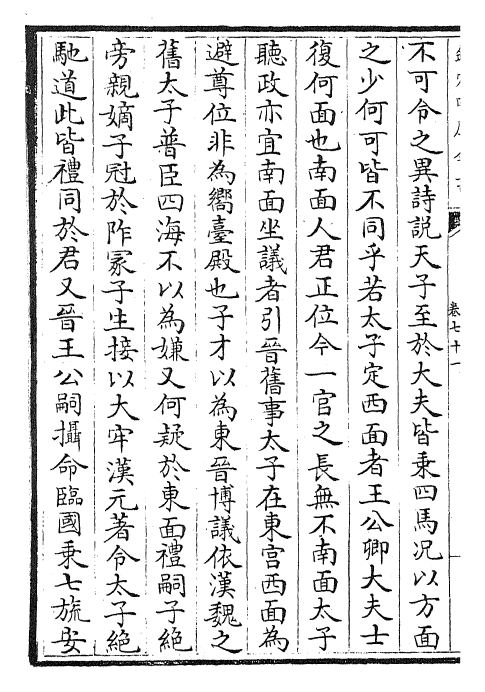 卷七十一
不可令之異詩説天子至於大夫皆乘四馬况以方面
之少何可皆不同乎若太子定西面者王公卿大夫士
復何面也南面人君正位今一官之長無不南面太子
聽政亦宜南面坐議者引晉舊事太子在東宫西面為
避尊位非為嚮臺殿也子才以為東晉博議依漢魏之
舊太子普臣四海不以為嫌又何疑於東面禮嗣子絶
旁親嫡子冠於阼冡子生接以大牢漢元著令太子絶
馳道此皆禮同於君又晉王公嗣攝命臨國乘七旒安